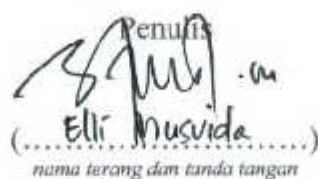 Penulis
(Elli Musvida)
nama terang dan tanda tangan